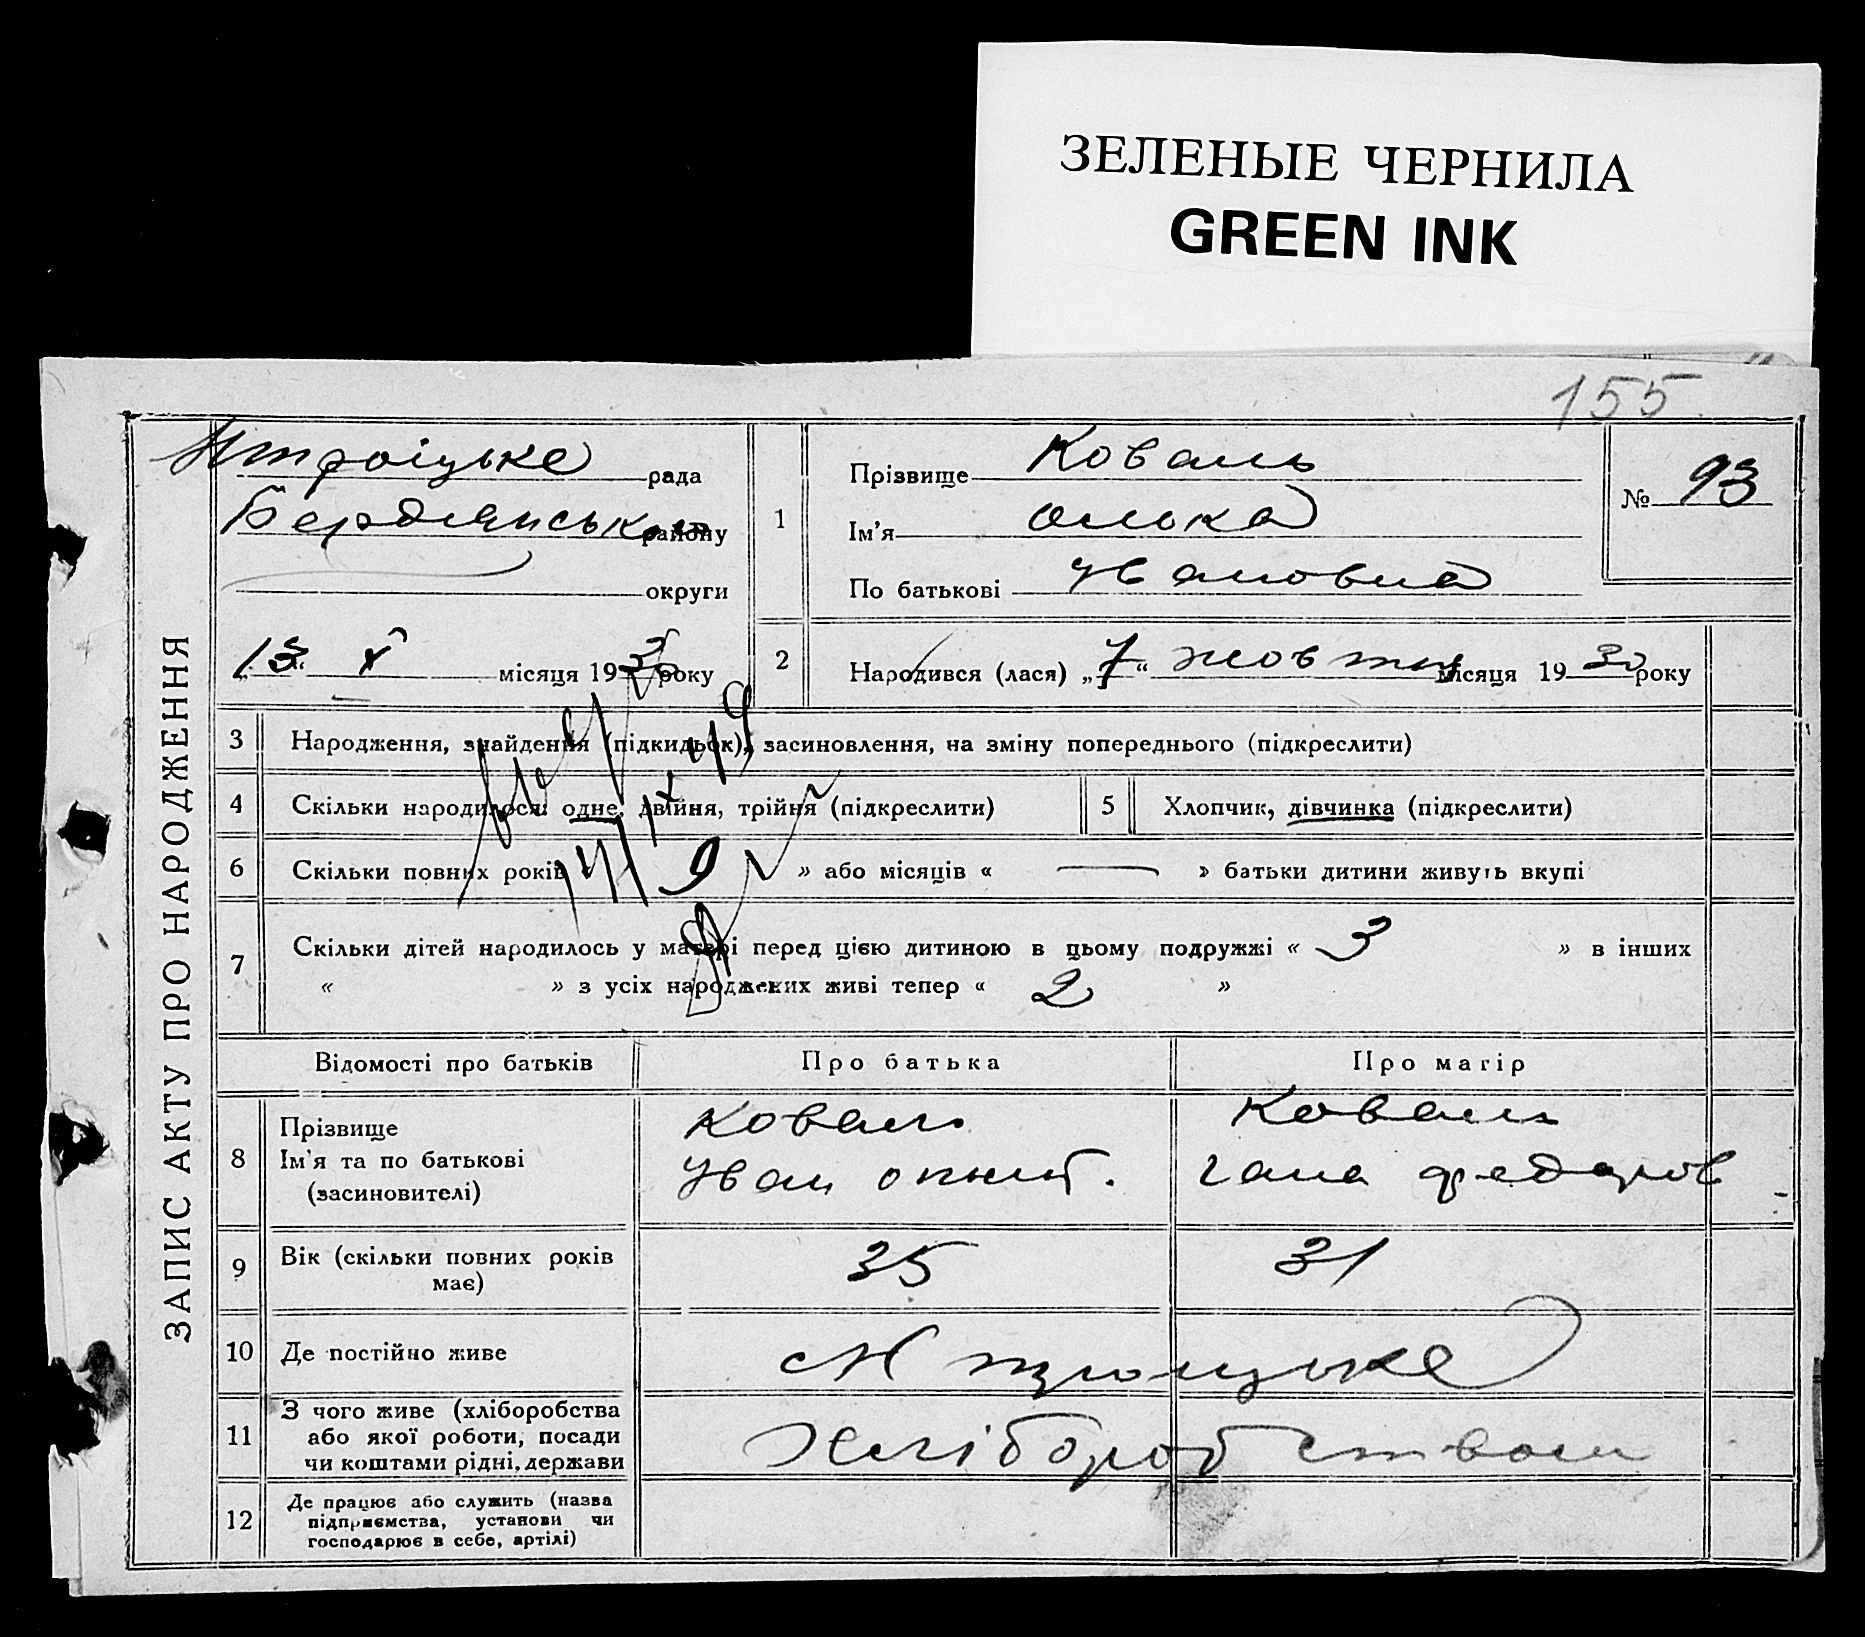 ЗЕЛЕНЫЕ ЧЕРНИЛА
GREEN INK
155
ЗАПИС АКТУ ПРО НАРОДЖЕННЯ
Нтроіцьке рада
Бердянського району
округи
13 X місяця 1930 року
1
Прізвище Коваль
Ім'я Олька
По батькові Ивановна
№ 93
2 Народився (лася) „7“ жовтня місяця 1930 року
3 Народження, знайдення (підкидьок), засиновлення, на зміну попереднього (підкреслити)
4 Скільки народилося: одне, двійня, трійня (підкреслити)
5 Хлопчик, дівчинка (підкреслити)
6 Скільки повних років 9 » або місяців « — » батьки дитини живуть вкупі
7 Скільки дітей народилось у матері перед цією дитиною в цьому подружжі « 3 » в інших
« » з усіх народжених живі тепер « 2 »
Відомості про батьків Про батька Про матір
8 Прізвище Коваль Коваль
Ім'я та по батькові Иван Гана Федоров
(засиновителі)
9 Вік (скільки повних років має) 35 31
10 Де постійно живе Нтроицьке
11 З чого живе (хліборобства
або якої роботи, посади
чи коштами рідні, держави Хліборобством
12 Де працює або служить (назва
підприємства, установи чи
господарює в себе, артілі)